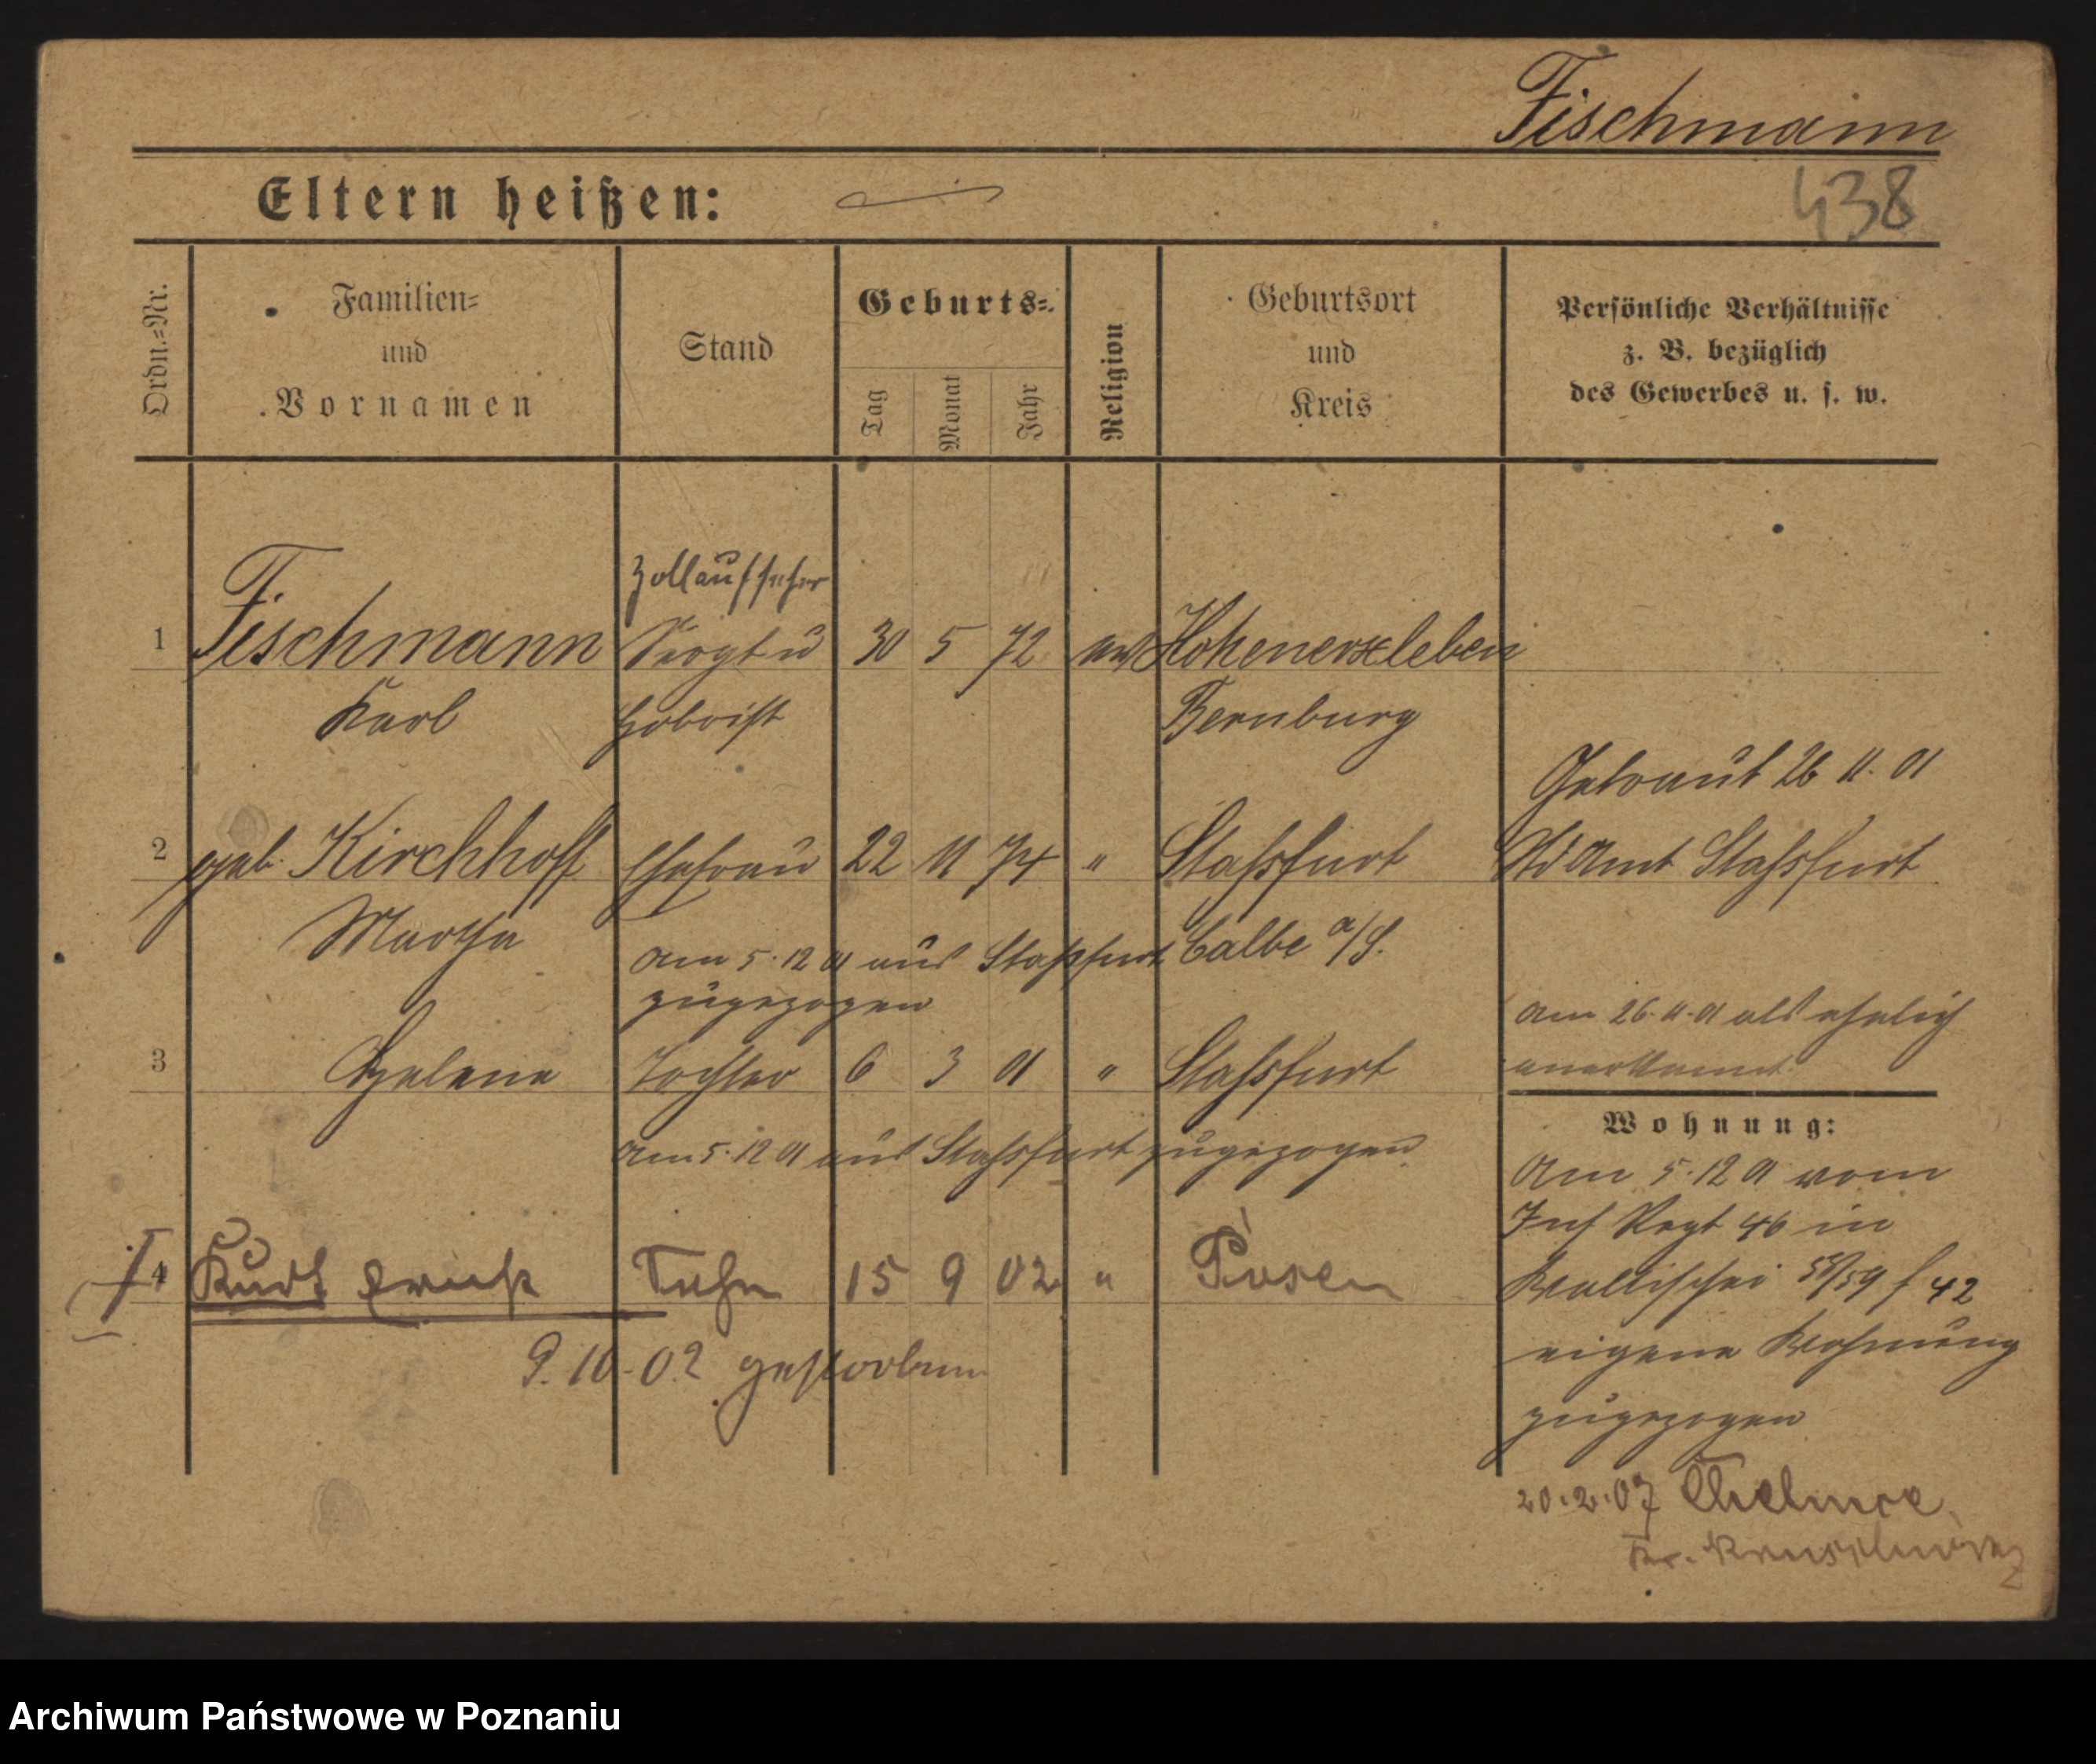 Fischmann
Eltern heißen:
438
Ordn.=Nr.
Familien=
und
Vornamen
Stand
Geburts=
Tag
Monat
Jahr
Religion
Geburtsort
und
Kreis
Persönliche Verhältnisse
z. B. bezüglich
des Gewerbes u. s. w.
Zollaufseher
1 Fischmann Sergt u 30 5 72 ev Hohenerxleben
Karl Hoboist Bernburg
Getraut 26 11. 01
2 geb. Kirchhoff Ehefrau 22 11 74 " Stassfurt StdAmt Stassfurt
Martha Calbe a/S.
am 5. 12 01 aus Stassfurt
zugezogen
am 26. 11. 01 als ehelich
anerkannt
3 Helene Tochter 6 3 01 " Stassfurt
Wohnung:
am 5. 12 01 aus Stassfurt zugezogen
Am 5. 12 01 vom
Inf Regt 46 in
4 Kurt Ernst Sohn 15 9 02 " Posen
Wallischei 58/59 f 42
9. 10. 02 gestorben
eigene Wohnung
zugezogen
20. 2. 07 Chelmce
Kr.
Archiwum Państwowe w Poznaniu